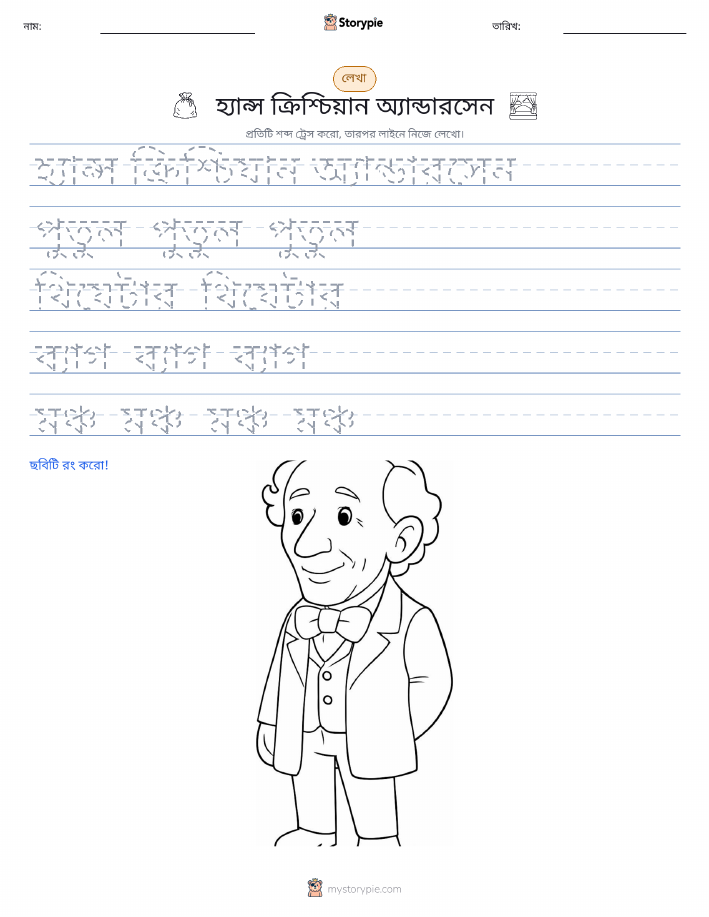 নাম:
Storypie
তারিখ:
লেখা
হ্যান্স ক্রিশ্চিয়ান অ্যান্ডারসেন
প্রতিটি শব্দ ট্রেস করো, তারপর লাইনে নিজে লেখো।
হ্যান্স ক্রিশ্চিয়ান অ্যান্ডারসেন
পুতুল পুতুল পুতুল
থিয়েটার থিয়েটার
ব্যাগ ব্যাগ ব্যাগ
মঞ্চ মঞ্চ মঞ্চ মঞ্চ
ছবিটি রং করো!
mystorypie.com